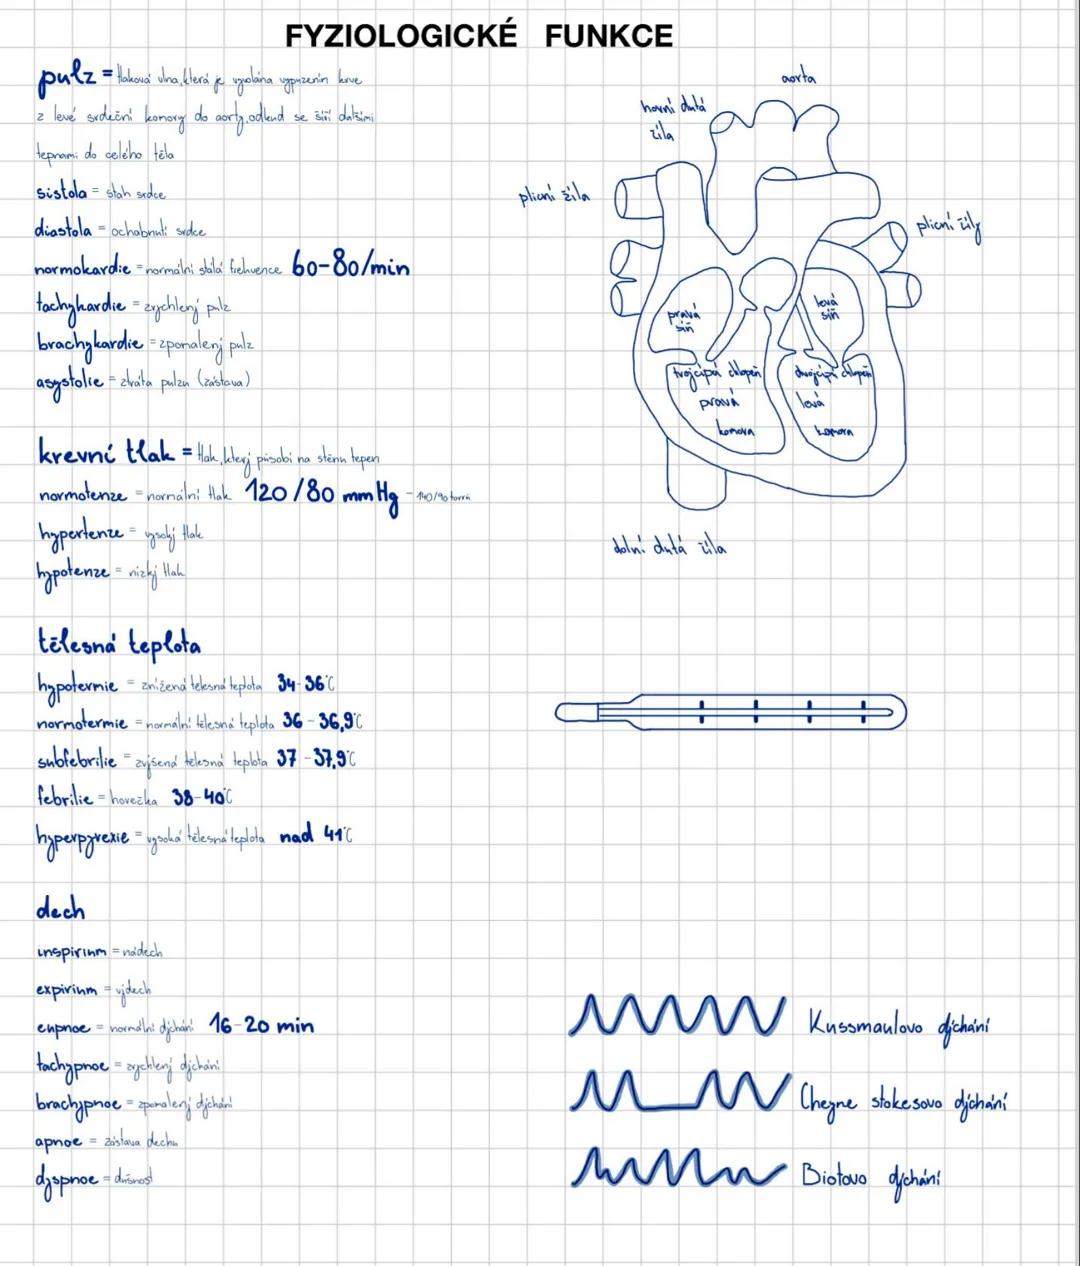 FYZIOLOGICKÉ FUNKCE
pulz = tlaková vlna, která je vyvolána vypuzením krve
z levé srdeční komory do aorty, odkud se šíří dalšími
tepnami do celého těla
sistola = stah srdce
diastola = ochabnutí srdce
normokardie = normální stálá frekvence 60-80/min
tachykardie = zrychlený pulz
brachykardie = zpomalený pulz
asystolie = ztráta pulzu (zástava)
krevní tlak = tlak, který působí na stěnu tepen
normotenze = normální tlak 120/80 mmHg - 140/90 torrů
hypertenze = vysoký tlak
hypotenze = nízký tlak
tělesná teplota
hypotermie = snížená tělesná teplota 34-36°C
normotermie = normální tělesná teplota 36-36,9°C
subfebrilie = zvýšená tělesná teplota 37-37,9°C
febrilie = horečka 38-40°C
hyperpyrexie = vysoká tělesná teplota nad 41°C
dech
inspirium = nádech
expirium = výdech
eupnoe = normální dýchání 16-20 min
tachypnoe = zrychlený dýchání
brachypnoe = zpomalený dýchání
apnoe = zástava dechu
dyspnoe = dušnost
aorta
horní dutá
žíla
plicní žíla
plicní žíly
pravá
síň
levá
síň
trojcípá chlopeň
pravá
komora
dvojcípá chlopeň
levá
komora
dolní dutá žíla
Kussmaulovo dýchání
Cheyne stokesovo dýchání
Biotovo dýchání